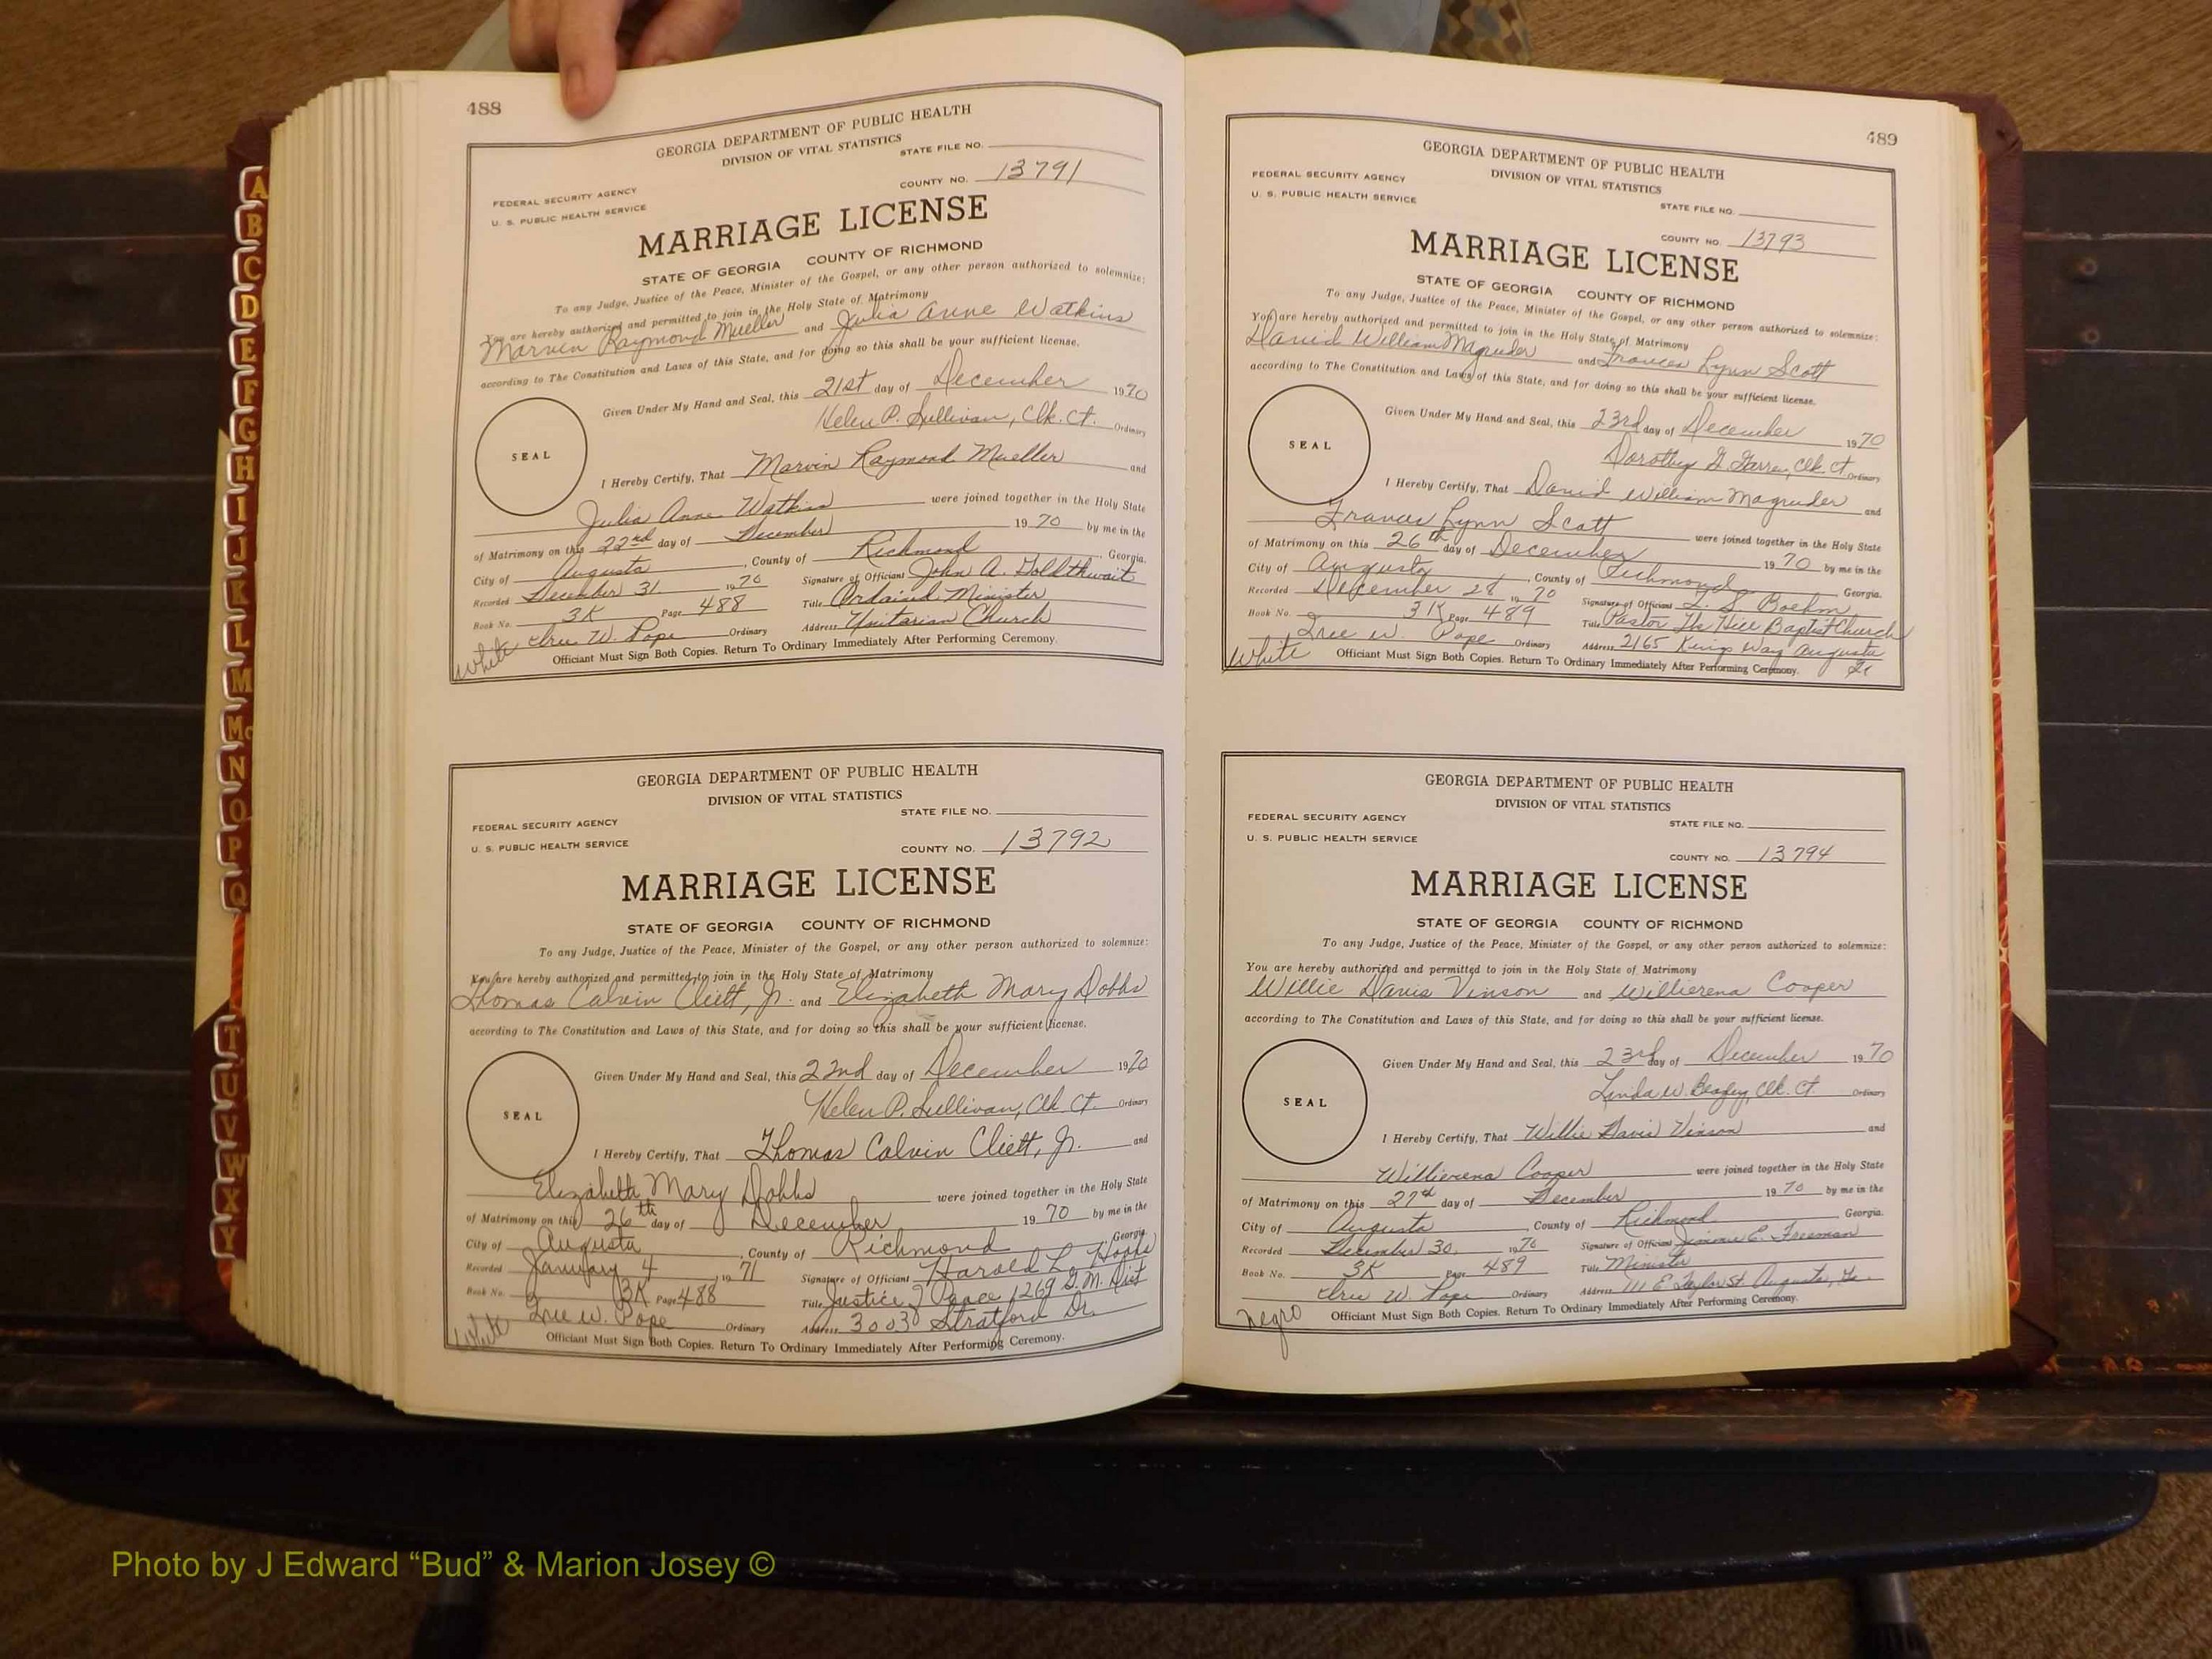 488
GEORGIA DEPARTMENT OF PUBLIC HEALTH
DIVISION OF VITAL STATISTICS
STATE FILE NO.
FEDERAL SECURITY AGENCY
COUNTY NO. 13791
U. S. PUBLIC HEALTH SERVICE
MARRIAGE LICENSE
STATE OF GEORGIA COUNTY OF RICHMOND
To any Judge, Justice of the Peace, Minister of the Gospel, or any other person authorized to solemnize:
You are hereby authorized and permitted to join in the Holy State of Matrimony
Marvin Raymond Mueller and Julia Anne Watkins
according to The Constitution and Laws of this State, and for doing so this shall be your sufficient license.
Given Under My Hand and Seal, this 21st day of December 1970
Helen P. Sullivan, Clk. Ct. Ordinary
SEAL
I Hereby Certify, That Marvin Raymond Mueller and
Julia Anne Watkins were joined together in the Holy State
of Matrimony on this 22nd day of December 19 70 by me in the
City of Augusta, County of Richmond, Georgia.
Recorded December 31, 1970 Signature of Officiant John A. Goldthwait
Book No. 3K Page 488 Title Ordained Minister
W. Pope Ordinary Address Unitarian Church
White Officiant Must Sign Both Copies. Return To Ordinary Immediately After Performing Ceremony.
GEORGIA DEPARTMENT OF PUBLIC HEALTH
DIVISION OF VITAL STATISTICS
STATE FILE NO.
FEDERAL SECURITY AGENCY
U. S. PUBLIC HEALTH SERVICE
COUNTY NO. 13792
MARRIAGE LICENSE
STATE OF GEORGIA COUNTY OF RICHMOND
To any Judge, Justice of the Peace, Minister of the Gospel, or any other person authorized to solemnize:
You are hereby authorized and permitted to join in the Holy State of Matrimony
Thomas Calvin Cliett, Jr. and Elizabeth Mary Dobbs
according to The Constitution and Laws of this State, and for doing so this shall be your sufficient license.
Given Under My Hand and Seal, this 22nd day of December 1970
Helen P. Sullivan, Clk. Ct. Ordinary
SEAL
I Hereby Certify, That Thomas Calvin Cliett, Jr. and
Elizabeth Mary Dobbs were joined together in the Holy State
of Matrimony on this 26th day of December 19 70 by me in the
City of Augusta, County of Richmond, Georgia
Recorded January 4, 1971 Signature of Officiant Harold L. Hobbs
Book No. 3K Page 488 Title Justice Peace 1269 G.M. Dist
W. Pope Ordinary Address 3003 Stratford Dr.
White Officiant Must Sign Both Copies. Return To Ordinary Immediately After Performing Ceremony.
489
GEORGIA DEPARTMENT OF PUBLIC HEALTH
DIVISION OF VITAL STATISTICS
FEDERAL SECURITY AGENCY
U. S. PUBLIC HEALTH SERVICE
STATE FILE NO.
COUNTY NO. 13793
MARRIAGE LICENSE
STATE OF GEORGIA COUNTY OF RICHMOND
To any Judge, Justice of the Peace, Minister of the Gospel, or any other person authorized to solemnize:
You are hereby authorized and permitted to join in the Holy State of Matrimony
David William Magruder and Frances Lynn Scott
according to The Constitution and Laws of this State, and for doing so this shall be your sufficient license.
Given Under My Hand and Seal, this 23rd day of December 1970
Dorothy G. Clk. Ct. Ordinary
SEAL
I Hereby Certify, That David William Magruder and
Frances Lynn Scott were joined together in the Holy State
of Matrimony on this 26th day of December 19 70 by me in the
City of Augusta, County of Richmond Georgia.
Recorded December 28, 1970 Signature of Officiant L. S. Boehm
Book No. 3K Page 489 Title Pastor The Hill Baptist Church
W. Pope Ordinary Address 2165 Kings Way Augusta
White Officiant Must Sign Both Copies. Return To Ordinary Immediately After Performing Ceremony. Ga
GEORGIA DEPARTMENT OF PUBLIC HEALTH
DIVISION OF VITAL STATISTICS
FEDERAL SECURITY AGENCY
STATE FILE NO.
U. S. PUBLIC HEALTH SERVICE
COUNTY NO. 13794
MARRIAGE LICENSE
STATE OF GEORGIA COUNTY OF RICHMOND
To any Judge, Justice of the Peace, Minister of the Gospel, or any other person authorized to solemnize:
You are hereby authorized and permitted to join in the Holy State of Matrimony
Willie Davis Vinson and Willierena Cooper
according to The Constitution and Laws of this State, and for doing so this shall be your sufficient license.
Given Under My Hand and Seal, this 23rd day of December 1970
Linda W. Clk. Ct. Ordinary
SEAL
I Hereby Certify, That Willie Davis Vinson and
Willierena Cooper were joined together in the Holy State
of Matrimony on this day of December 19 70 by me in the
City of Augusta, County of Richmond, Georgia.
Recorded December 30, 1970 Signature of Officiant Jimmie E. Freeman
Book No. 3K Page 489 Title Minister
W. Pope Ordinary Address 111 E Taylor St. Augusta, Ga.
Negro Officiant Must Sign Both Copies. Return To Ordinary Immediately After Performing Ceremony.
A
B
C
D
E
F
G
H
I
J
K
L
M
Mc
N
O
P
Q
T
U
V
W
X
Y
Photo by J Edward “Bud” & Marion Josey ©